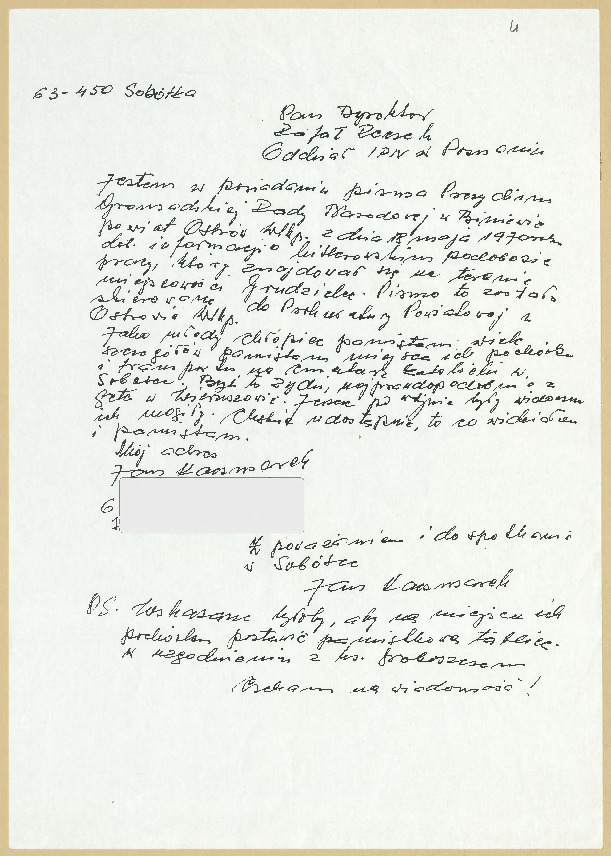 4
63-450 Sobótka
Pan Dyrektor
Rafał Reczek
Oddział IPN w Poznaniu
Jestem w posiadaniu pisma Prezydium
Gromadzkiej Rady Narodowej w Biniewie
powiat Ostrów Wlkp. z dnia 18 maja 1970 roku
dot. informacji o hitlerowskim podobozie
pracy, który znajdował się na terenie
miejscowości Grudzielec. Pismo to zostało
skierowane do Prokuratury Powiatowej w
Ostrowie Wlkp.
Jako młody chłopiec pamiętam wiele
szczegółów pamiętam miejsce ich pochówku
i transportu na cmentarz katolicki w
Sobótce. Byli to Żydzi, najprawdopodobniej z
geta w Wieruszowie. Jeszcze po wojnie były widoczne
ich mogiły. Chętnie udostępnię, to co widziałem
i pamiętam.
Mój adres
Jan Kaczmarek
6
z poważaniem i do spotkania
w Sobótce
Jan Kaczmarek
PS. Wskazane byłoby, aby na miejscu ich
pochówku postawić pamiątkową tablicę.
w uzgodnieniu z ks. proboszczem
Czekam na wiadomość!